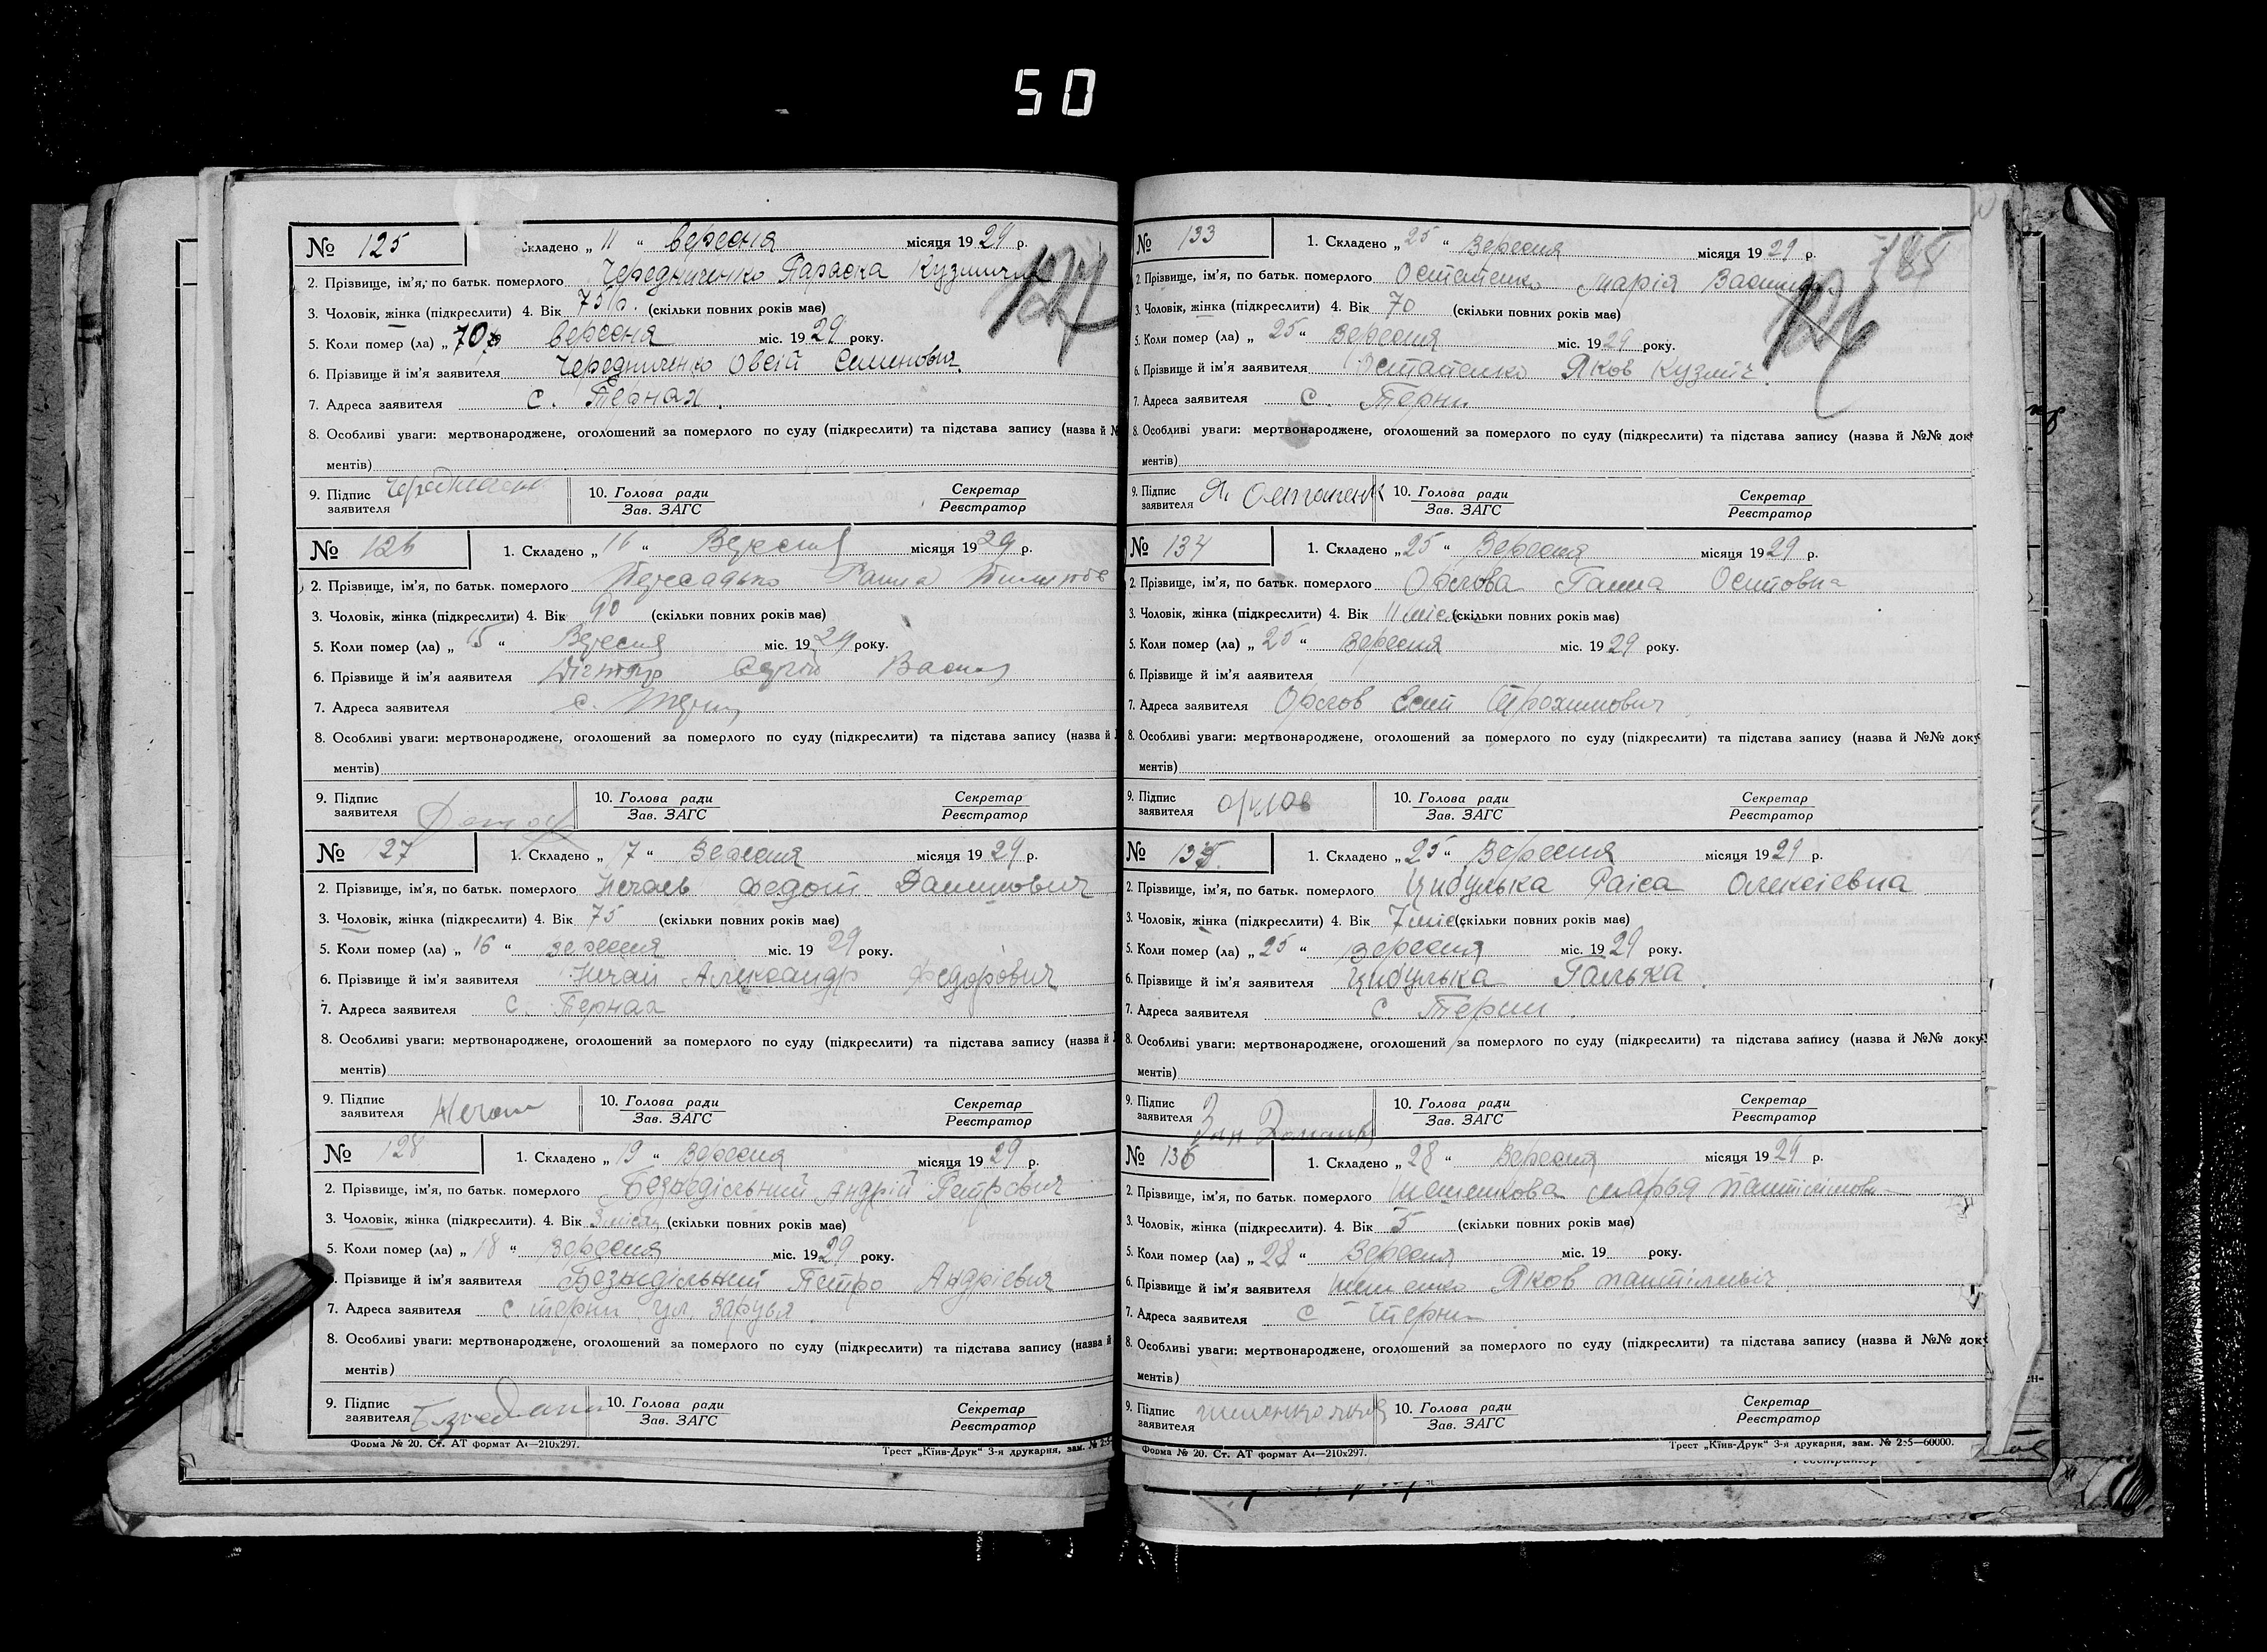 50
№ 125 Складено „ 11 “ вересня місяця 1929 р.
2. Прізвище, ім'я, по батьк. померлого Чередниченко Параска
3. Чоловік, жінка (підкреслити) 4. Вік 75 р. (скільки повних років має)
5. Коли помер (ла) „ вересня міс. 1929 року.
6. Прізвище й ім'я заявителя Чередниченко Овсій Семенович.
7. Адреса заявителя с. Тернах.
8. Особливі уваги: мертвонароджене, оголошений за померлого по суду (підкреслити) та підстава запису (назва й №
ментів)
9. Підпис заявителя 10. Голова ради Зав. ЗАГС Секретар Реєстратор
№ 126 1. Складено „ 16 “ Вересня місяця 1929 р.
2. Прізвище, ім'я, по батьк. померлого
3. Чоловік, жінка (підкреслити) 4. Вік 90 (скільки повних років має)
5. Коли помер (ла) „ 15 “ Вересня міс. 1929 року.
6. Прізвище й ім'я заявителя Сергій
7. Адреса заявителя с. Терни
8. Особливі уваги: мертвонароджене, оголошений за померлого по суду (підкреслити) та підстава запису (назва й
ментів)
9. Підпис заявителя 10. Голова ради Зав. ЗАГС Секретар Реєстратор
№ 127 1. Складено „ 17 “ Вересня місяця 1929 р.
2. Прізвище, ім'я, по батьк. померлого Нечаєв Федот Данилович
3. Чоловік, жінка (підкреслити) 4. Вік 75 (скільки повних років має)
5. Коли помер (ла) „ 16 “ вересня міс. 1929 року.
6. Прізвище й ім'я заявителя Нечай Александр Федорович
7. Адреса заявителя с.
8. Особливі уваги: мертвонароджене, оголошений за померлого по суду (підкреслити) та підстава запису (назва й
ментів)
9. Підпис заявителя 10. Голова ради Зав. ЗАГС Секретар Реєстратор
№ 128 1. Складено „ 19 “ Вересня місяця 1929 р.
2. Прізвище, ім'я, по батьк. померлого Безнедільний Андрій Петрович
3. Чоловік, жінка (підкреслити). 4. Вік (скільки повних років має)
5. Коли помер (ла) „ 18 “ вересня міс. 1929 року.
Прізвище й ім'я заявителя Безнедільний Петро Андрієвич
7. Адреса заявителя с терни ул.
8. Особливі уваги: мертвонароджене, оголошений за померлого по суду (підкреслити) та підстава запису (назва й
ментів)
9. Підпис заявителя 10. Голова ради Зав. ЗАГС Секретар Реєстратор
Форма № 20. Ст. АТ формат А4—210х297. Трест „Київ-Друк“ 3-я друкарня, зам. №
№ 133 1. Складено „ 25 “ Вересня місяця 1929 р.
2. Прізвище, ім'я, по батьк. померлого Остапенко Марія
3. Чоловік, жінка (підкреслити) 4. Вік 70 (скільки повних років має)
5. Коли помер (ла) „ 25 “ Вересня міс. 1929 року.
6. Прізвище й ім'я заявителя Остапенко Яков Кузмич.
7. Адреса заявителя с. Терни.
8. Особливі уваги: мертвонароджене, оголошений за померлого по суду (підкреслити) та підстава запису (назва й №№ док
ментів)
9. Підпис заявителя Я. Остапенк 10. Голова ради Зав. ЗАГС Секретар Реєстратор
№ 134 1. Складено „ 25 “ Вересня місяця 1929 р.
2. Прізвище, ім'я, по батьк. померлого Ганна
3. Чоловік, жінка (підкреслити) 4. Вік 11 міс. (скільки повних років має)
5. Коли помер (ла) „ 25 “ вересня міс. 1929 року.
6. Прізвище й ім'я заявителя
7. Адреса заявителя Трохимович
8. Особливі уваги: мертвонароджене, оголошений за померлого по суду (підкреслити) та підстава запису (назва й №№ доку
ментів)
9. Підпис заявителя 10. Голова ради Зав. ЗАГС Секретар Реєстратор
№ 135 1. Складено „ 25 “ Вересня місяця 1929 р.
2. Прізвище, ім'я, по батьк. померлого Цибулька Раіса Олексіевна
3. Чоловік, жінка (підкреслити) 4. Вік 7 міс (скільки повних років має)
5. Коли помер (ла) „ 25 “ Вересня міс. 1929 року.
6. Прізвище й ім'я заявителя Цибулька Галька.
7. Адреса заявителя с. Терни.
8. Особливі уваги: мертвонароджене, оголошений за померлого по суду (підкреслити) та підстава запису (назва й №№ доку
ментів)
9. Підпис заявителя 10. Голова ради Зав. ЗАГС Секретар Реєстратор
№ 136 1. Складено „ 28 “ Вересня місяця 1929 р.
2. Прізвище, ім'я, по батьк. померлого Марья
3. Чоловік, жінка (підкреслити). 4. Вік 5 (скільки повних років має)
5. Коли помер (ла) „ 28 “ Вересня міс. 19 року.
6. Прізвище й ім'я заявителя Яков
7. Адреса заявителя с Терни
8. Особливі уваги: мертвонароджене, оголошений за померлого по суду (підкреслити) та підстава запису (назва й №№ док
ментів)
9. Підпис заявителя 10. Голова ради Зав. ЗАГС Секретар Реєстратор
Форма № 20. Ст. АТ формат А4—210х297. Трест „Київ-Друк“ 3-я друкарня, зам. № 255—60000.